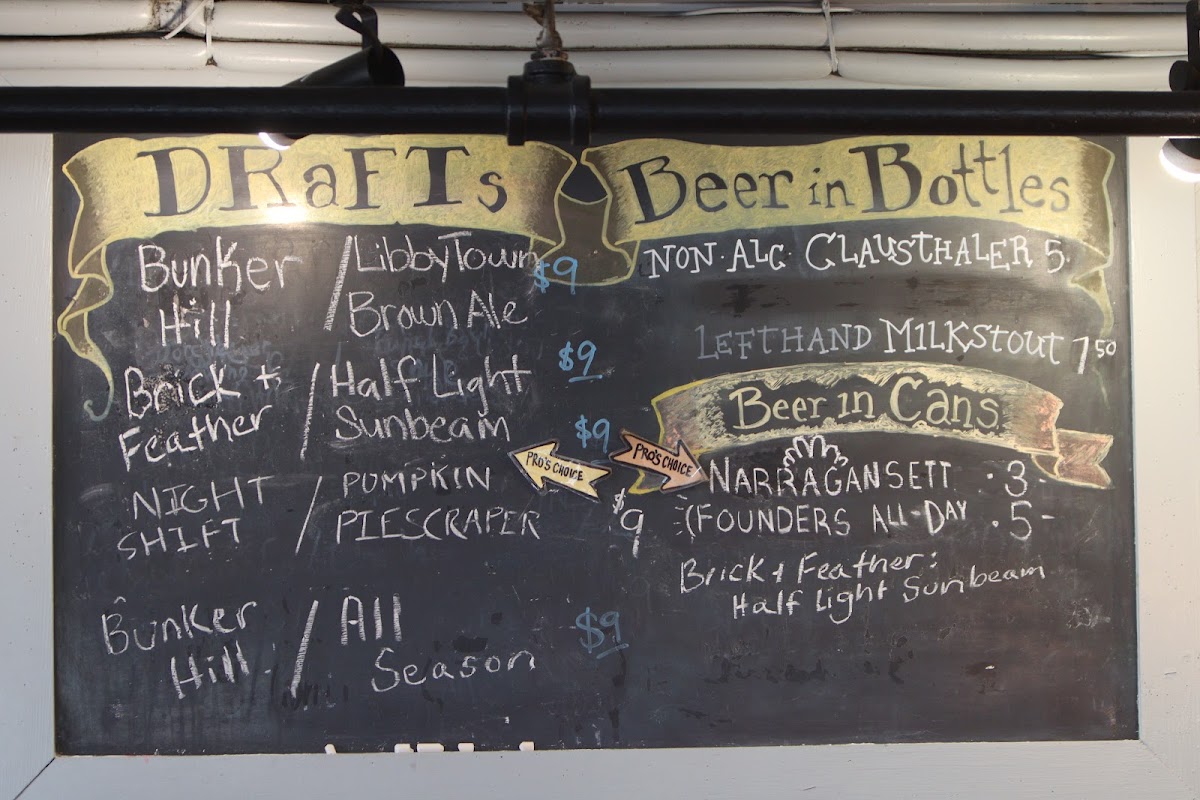 DRaFTs
Bunker / LibbyTown $9
Hill Brown Ale
Brick + / Half Light $9
Feather Sunbeam $9
PRO'S CHOICE
NIGHT / PUMPKIN
SHIFT PIESCRAPER $9
Bunker / All $9
Hill Season
Beer in Bottles
NON ALC CLAUSTHALER 5.
LEFTHAND MILKSTOUT 7 50
Beer in Cans
PRO'S CHOICE
NARRAGANSETT . 3 -
(FOUNDERS ALL-DAY . 5 -
Brick + Feather:
Half Light Sunbeam